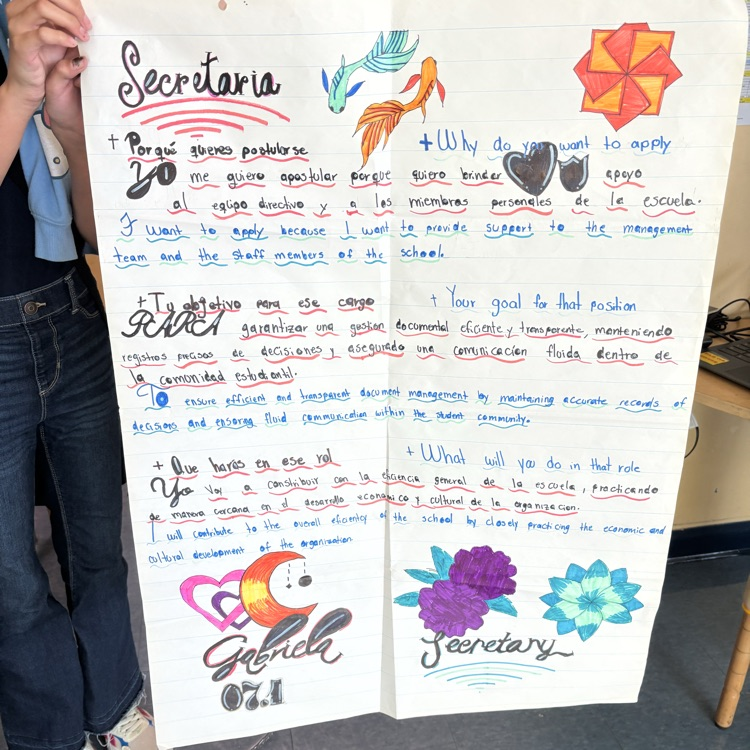 Secretaria
+ Porqué quieres postularse
+ Why do you want to apply
Yo me quiero apostular porque quiero brinder apoyo
al equipo directivo y a los miembros personales de la escuela.
I want to apply because I want to provide support to the management
team and the staff members of the school.
+ Tu objetivo para ese cargo
+ Your goal for that position
PARA garantizar una gestion documental eficiente y transparente, manteniendo
registros precisos de decisiones y asegurado una comunicacion fluida dentro de
la comunidad estudiantil.
To ensure efficient and transparent document management by maintaining accurate records of
decisions and ensoring fluid communication within the student community.
+ Que harás en ese rol
+ What will you do in that role
Yo voy a constribuir con la eficiencia general de la escuela, practicando
de manera cercana en el desarrollo economico y cultural de la organizacion.
I will contribute to the overall eficientcy of the school by closely practicing the economic and
cultural development of the organization
Gabriela
07.1
Secretary